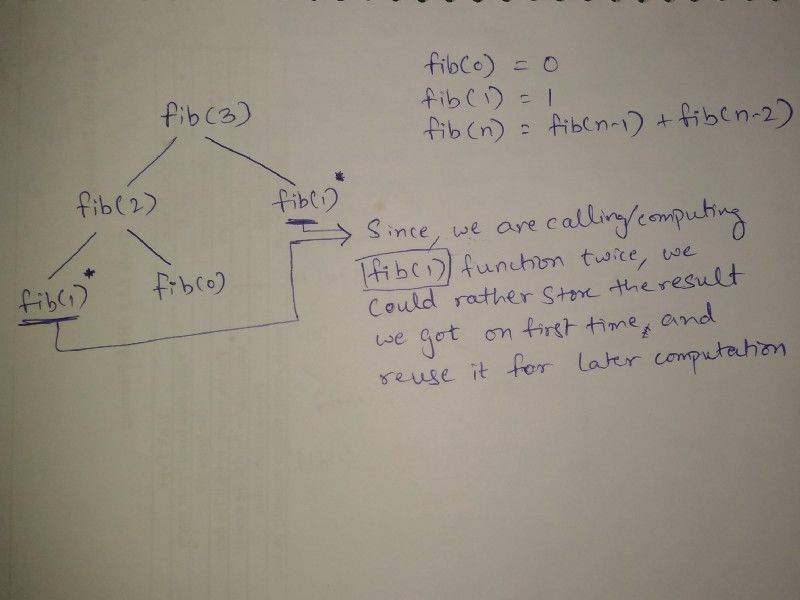 fib(0) = 0
fib(1) = 1
fib(n) = fib(n-1) + fib(n-2)
fib(3)
fib(2)
fib(1)*
fib(1)*
fib(0)
Since, we are calling/computing
fib(1) function twice, we
could rather store the result
we got on first time, and
reuse it for later computation